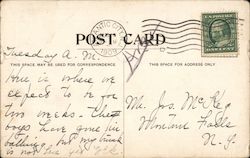 Tuesday A.M.
POST CARD
THIS SPACE MAY BE USED FOR CORRESPONDENCE
THIS SPACE FOR ADDRESS ONLY
Here is where we
expect to be for
two weeks - The
boys have gone in
bathing but my trunk
is not here yet
Mr. Jos.
Montour Falls
N.Y.